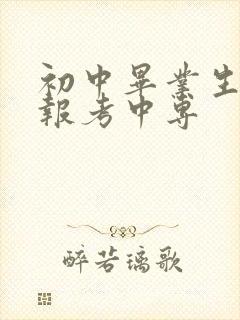 初中畢業生
報考中專
醉若璃歌